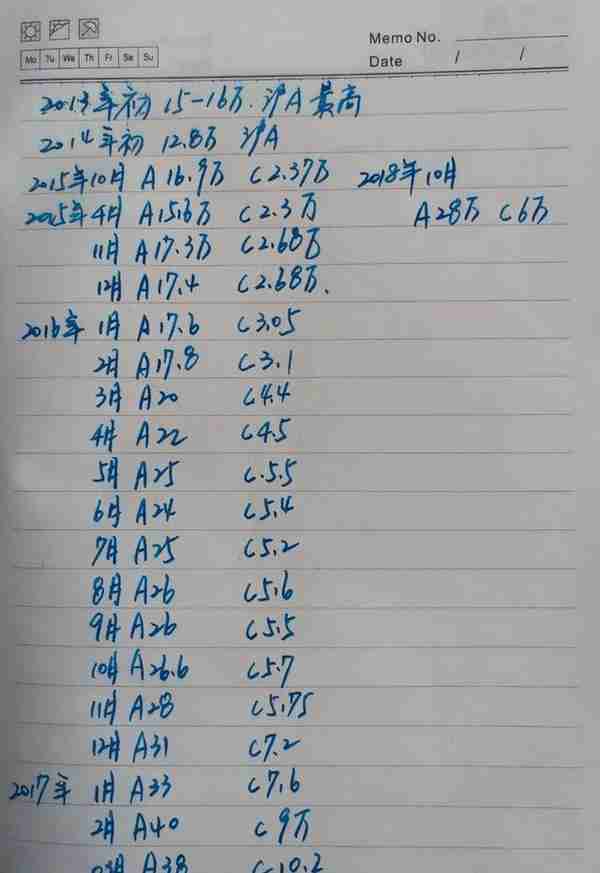 Memo No.
Mo Tu We Th Fr Sa Su
Date / /
2013年初 15-16万. 沪A 最高
2014年初 12.8万 沪A
2015年10月 A 16.9万 C2.37万 2018年10月
2015年4月 A15.6万 C2.3万 A28万 C6万
11月 A17.3万 C2.68万
12月 A17.4 C2.68万.
2016年 1月 A17.6 C3.05
2月 A17.8 C3.1
3月 A20 C4.4
4月 A22 C4.5
5月 A25 C.5.5
6月 A24 C5.4
7月 A25 C5.2
8月 A26 C5.6
9月 A26 C5.5
10月 A26.6 C5.7
11月 A28 C5.75
12月 A31 C7.2
2017年 1月 A33 C7.6
2月 A40 C9万
A38 C10.2